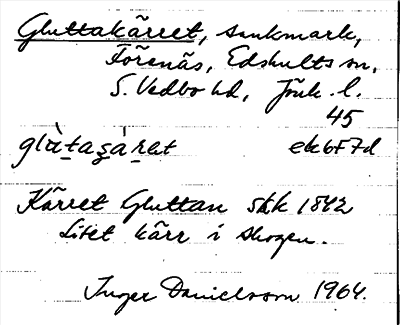 Gluttakärret, sankmark,
Förenäs, Edshults sn,
S. Vedbo hd, Jönk. l.
45
glùta̱ʂà̱ret ek6F7d
Kärret Gluttan skk 1842
Litet kärr i skogen.
Inger Danielsson 1964.